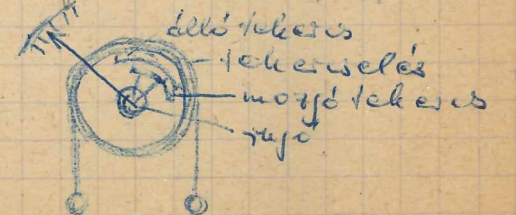 álló tekercs
tekercselés
mozgó tekercs
rugó